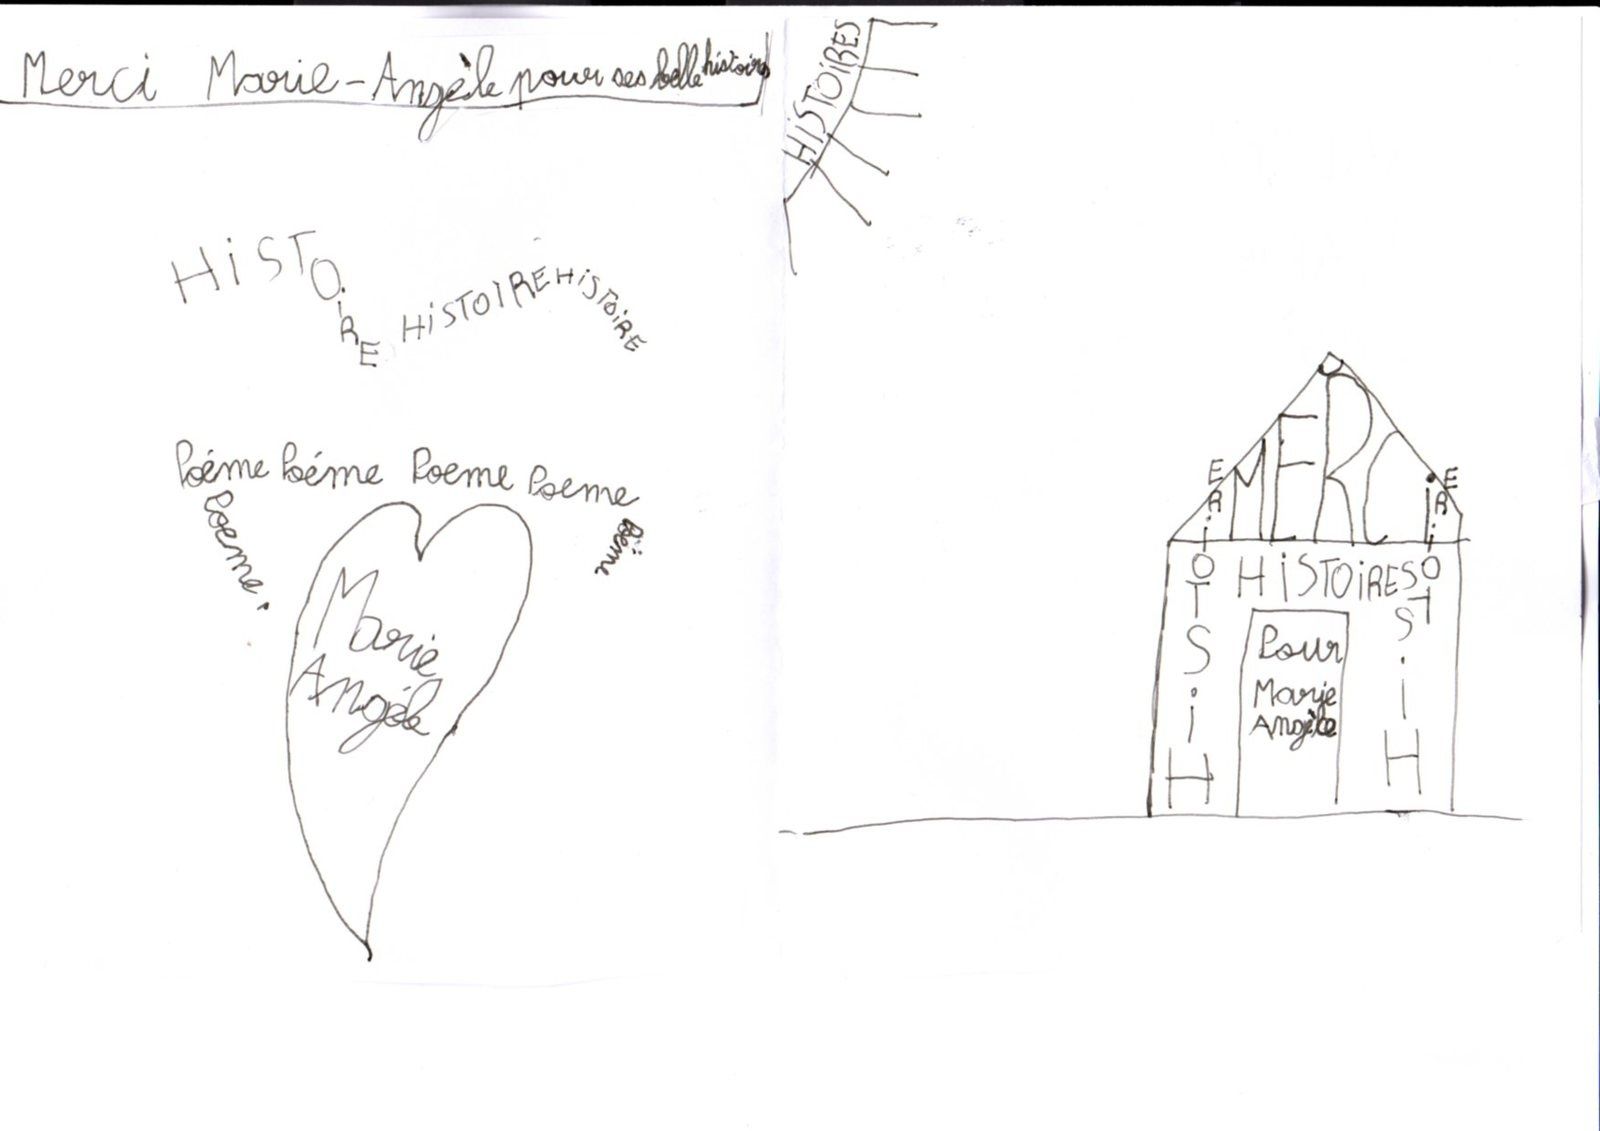 Merci Marie-Angèle pour ses belle histoires
HiSTOiRE HiSTOIRE HiSTOiRE
Poéme Poéme Poeme Poeme
Poeme.
Poéme
Marie
Angèle
HISTOIRES
MERCi
HiSTOiRES
HiSTOiRE
HiSTOiRE
Pour
Marie
Angèle